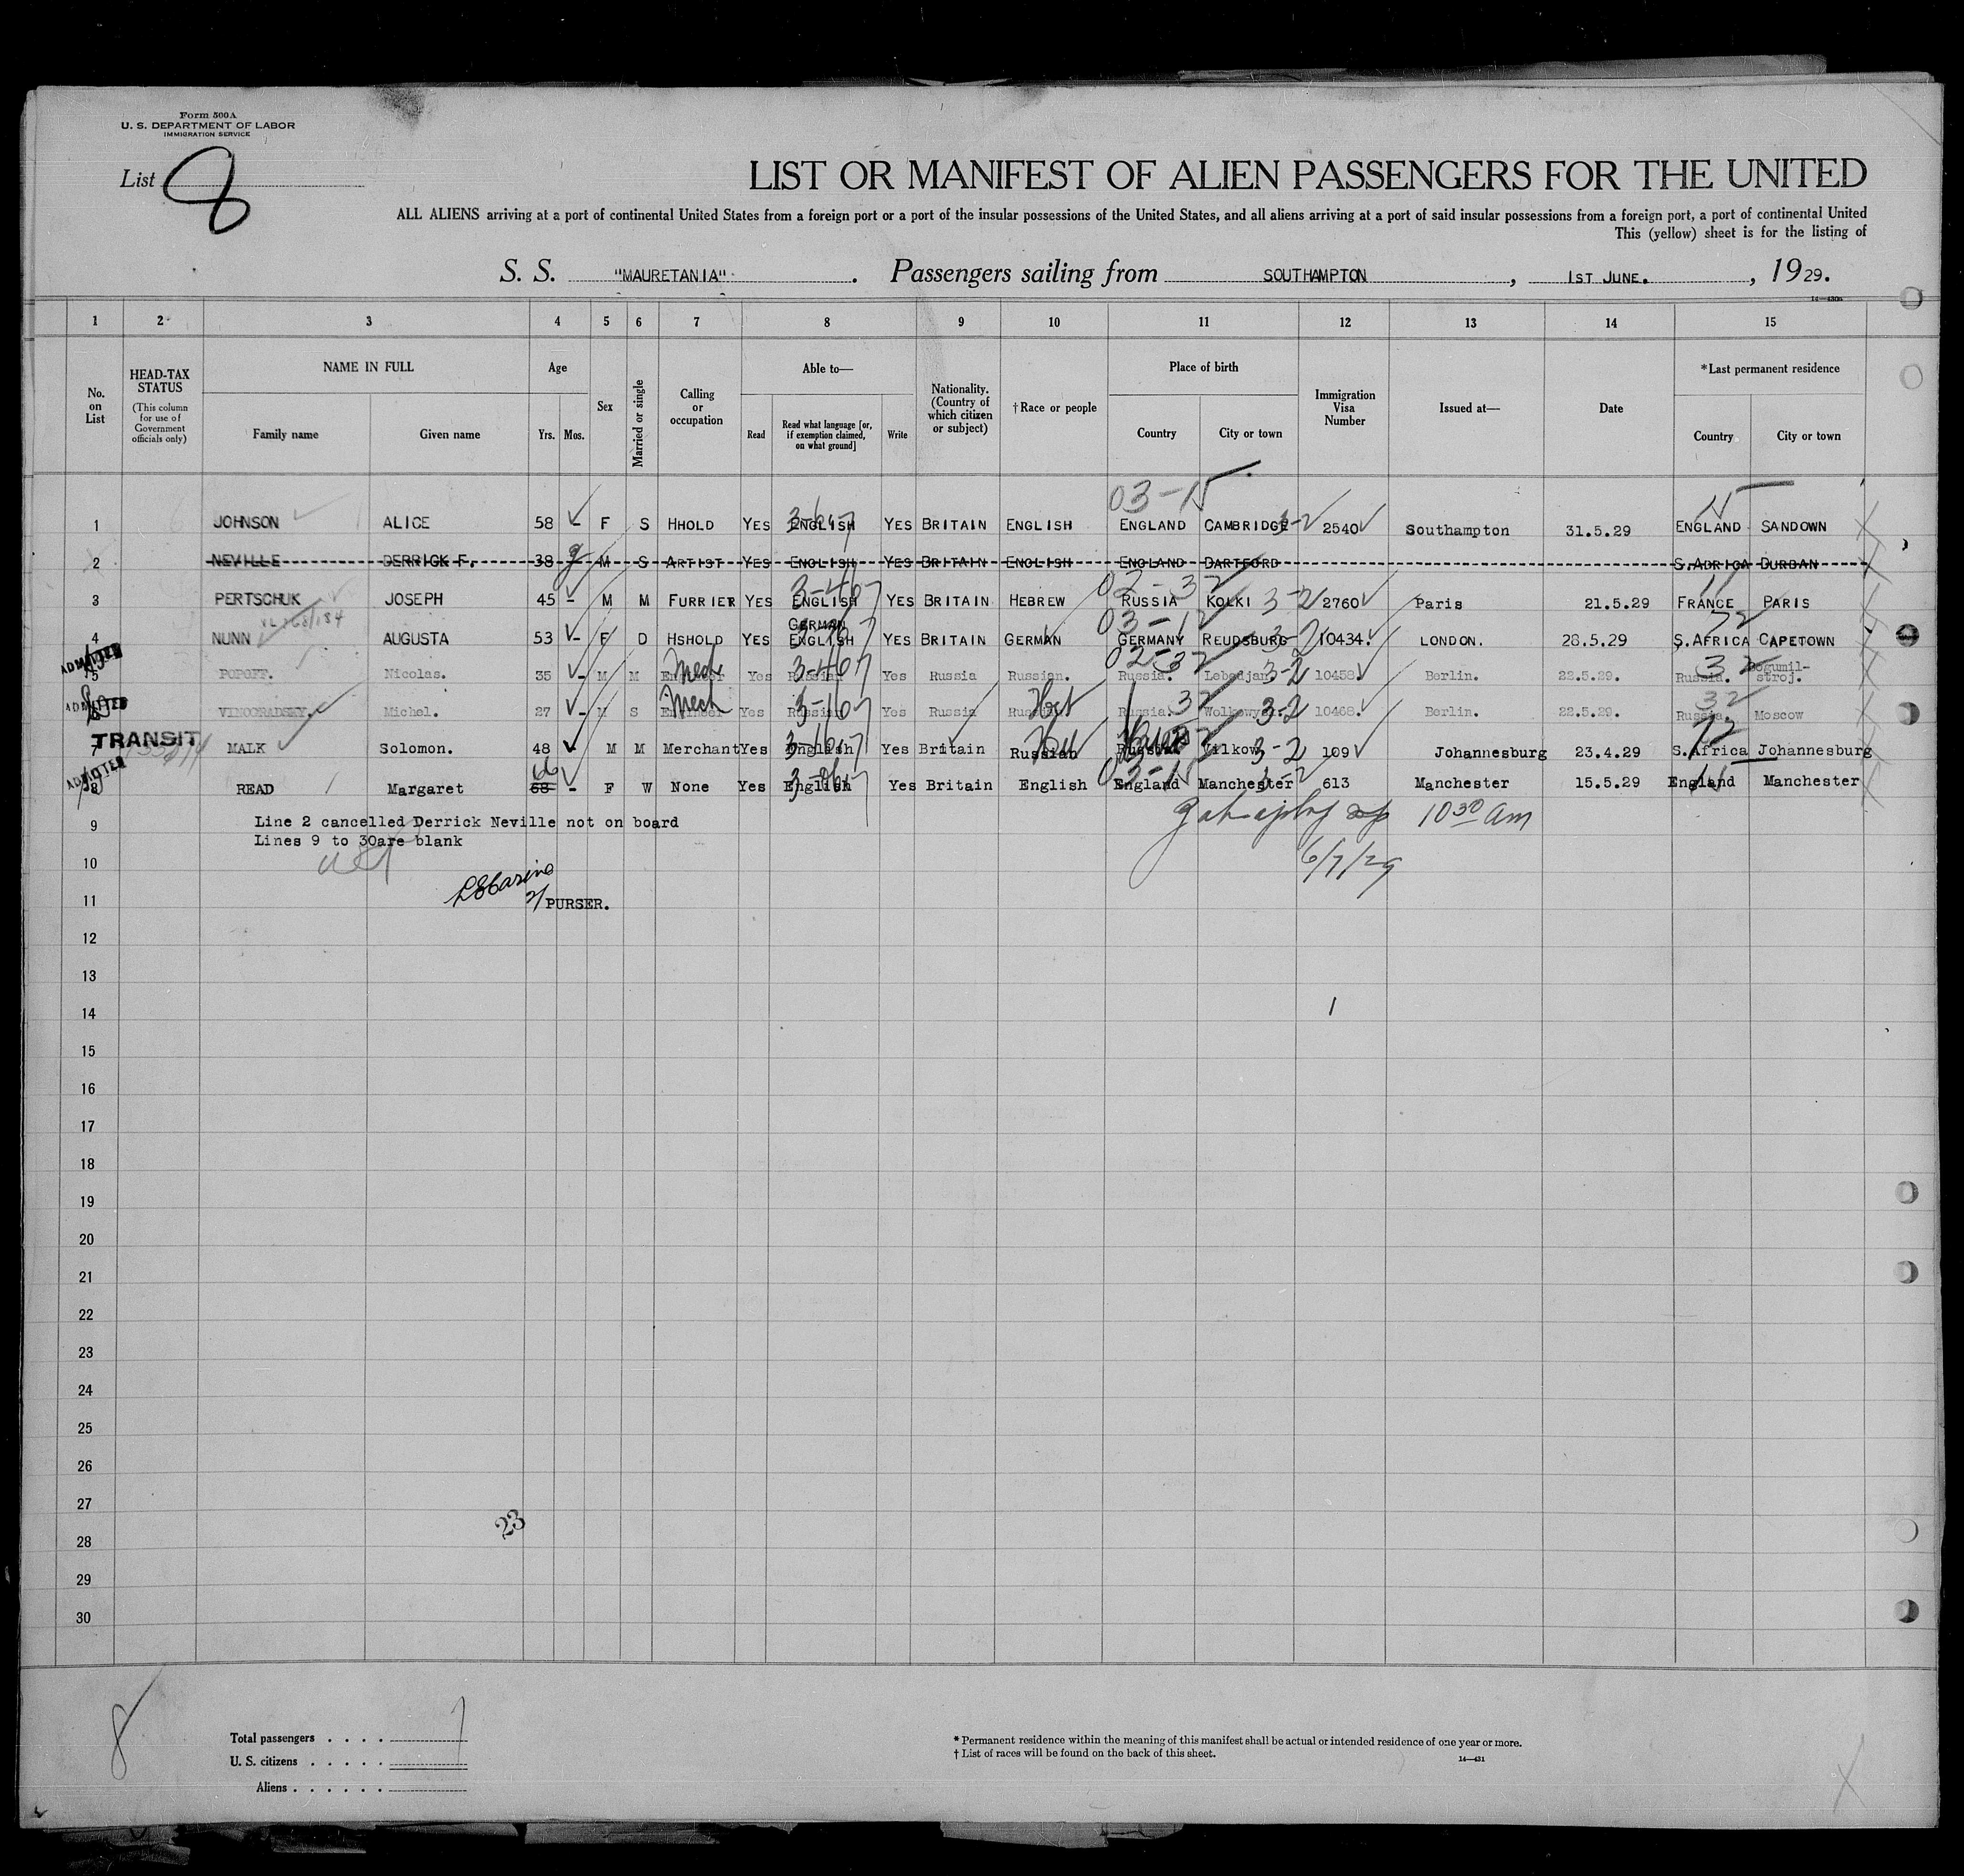 Form 500A
U. S. DEPARTMENT OF LABOR
IMMIGRATION SERVICE
List 8
LIST OR MANIFEST OF ALIEN PASSENGERS FOR THE UNITED
ALL ALIENS arriving at a port of continental United States from a foreign port or a port of the insular possessions of the United States, and all aliens arriving at a port of said insular possessions from a foreign port, a port of continental United
This (yellow) sheet is for the listing of
S. S. "MAURETANIA" . Passengers sailing from SOUTHAMPTON , 1ST JUNE. , 1929.
14—430a
1 2 3 4 5 6 7 8 9 10 11 12 13 14 15
No. on List
HEAD-TAX STATUS (This column for use of Government officials only)
NAME IN FULL
Family name Given name
Age
Yrs. Mos.
Sex
Married or single
Calling or occupation
Able to—
Read
Read what language [or, if exemption claimed, on what ground]
Write
Nationality. (Country of which citizen or subject)
†Race or people
Place of birth
Country City or town
Immigration Visa Number
Issued at—
Date
*Last permanent residence
Country City or town
03-15
1 JOHNSON ALICE 58 - F S HHOLD YES ENGLISH YES BRITAIN ENGLISH ENGLAND CAMBRIDGE 3-2 2540 Southampton 31.5.29 ENGLAND SANDOWN
2 NEVILLE DERRICK F. 38 9 M S ARTIST YES ENGLISH YES BRITAIN ENGLISH ENGLAND DARTFORD S.ADRICA DURBAN
3-46 02-32
3 PERTSCHUK JOSEPH 45 - M M FURRIER YES ENGLISH YES BRITAIN HEBREW RUSSIA KOLKI 3-2 2760 Paris 21.5.29 FRANCE PARIS
GERMAN
4 NUNN AUGUSTA 53 - F D HSHOLD YES ENGLISH YES BRITAIN GERMAN GERMANY REUDSBURG 3-2 10434. LONDON. 28.5.29 S.AFRICA CAPETOWN
ADMITTED
02-32
5 POPOFF. Nicolas. 35 - M M Engineer Mech Yes Russian Yes Russia Russian. Russia. Lebedjan 3-2 10458 Berlin. 22.5.29. Russia. Bogumil-
stroj.
ADMITTED
6 VINOGRADSKY. Michel. 27 - M S Engineer Mech Yes Russian Yes Russia Russian Heb Russia. 32 Wolkowy 3-2 10468. Berlin. 22.5.29. Russia. 32 Moscow
TRANSIT
7 MALK Solomon. 48 M M Merchant Yes English Yes Britain Russian Heb Russia Vilkow 3-2 109 Johannesburg 23.4.29 S.Africa Johannesburg
ADMITTED
66
8 READ Margaret 68 - F W None Yes English Yes Britain English England Manchester 3-2 613 Manchester 15.5.29 England Manchester
9 Line 2 cancelled Derrick Neville not on board
Lines 9 to 30are blank
10 30 am
10
6/7/29
11
2/ PURSER.
12
13
14
15
16
17
18
19
20
21
22
23
24
25
26
27
23
28
29
30
8
Total passengers . . . . 7
U. S. citizens . . . . .
Aliens . . . . . .
* Permanent residence within the meaning of this manifest shall be actual or intended residence of one year or more.
† List of races will be found on the back of this sheet.
14—431